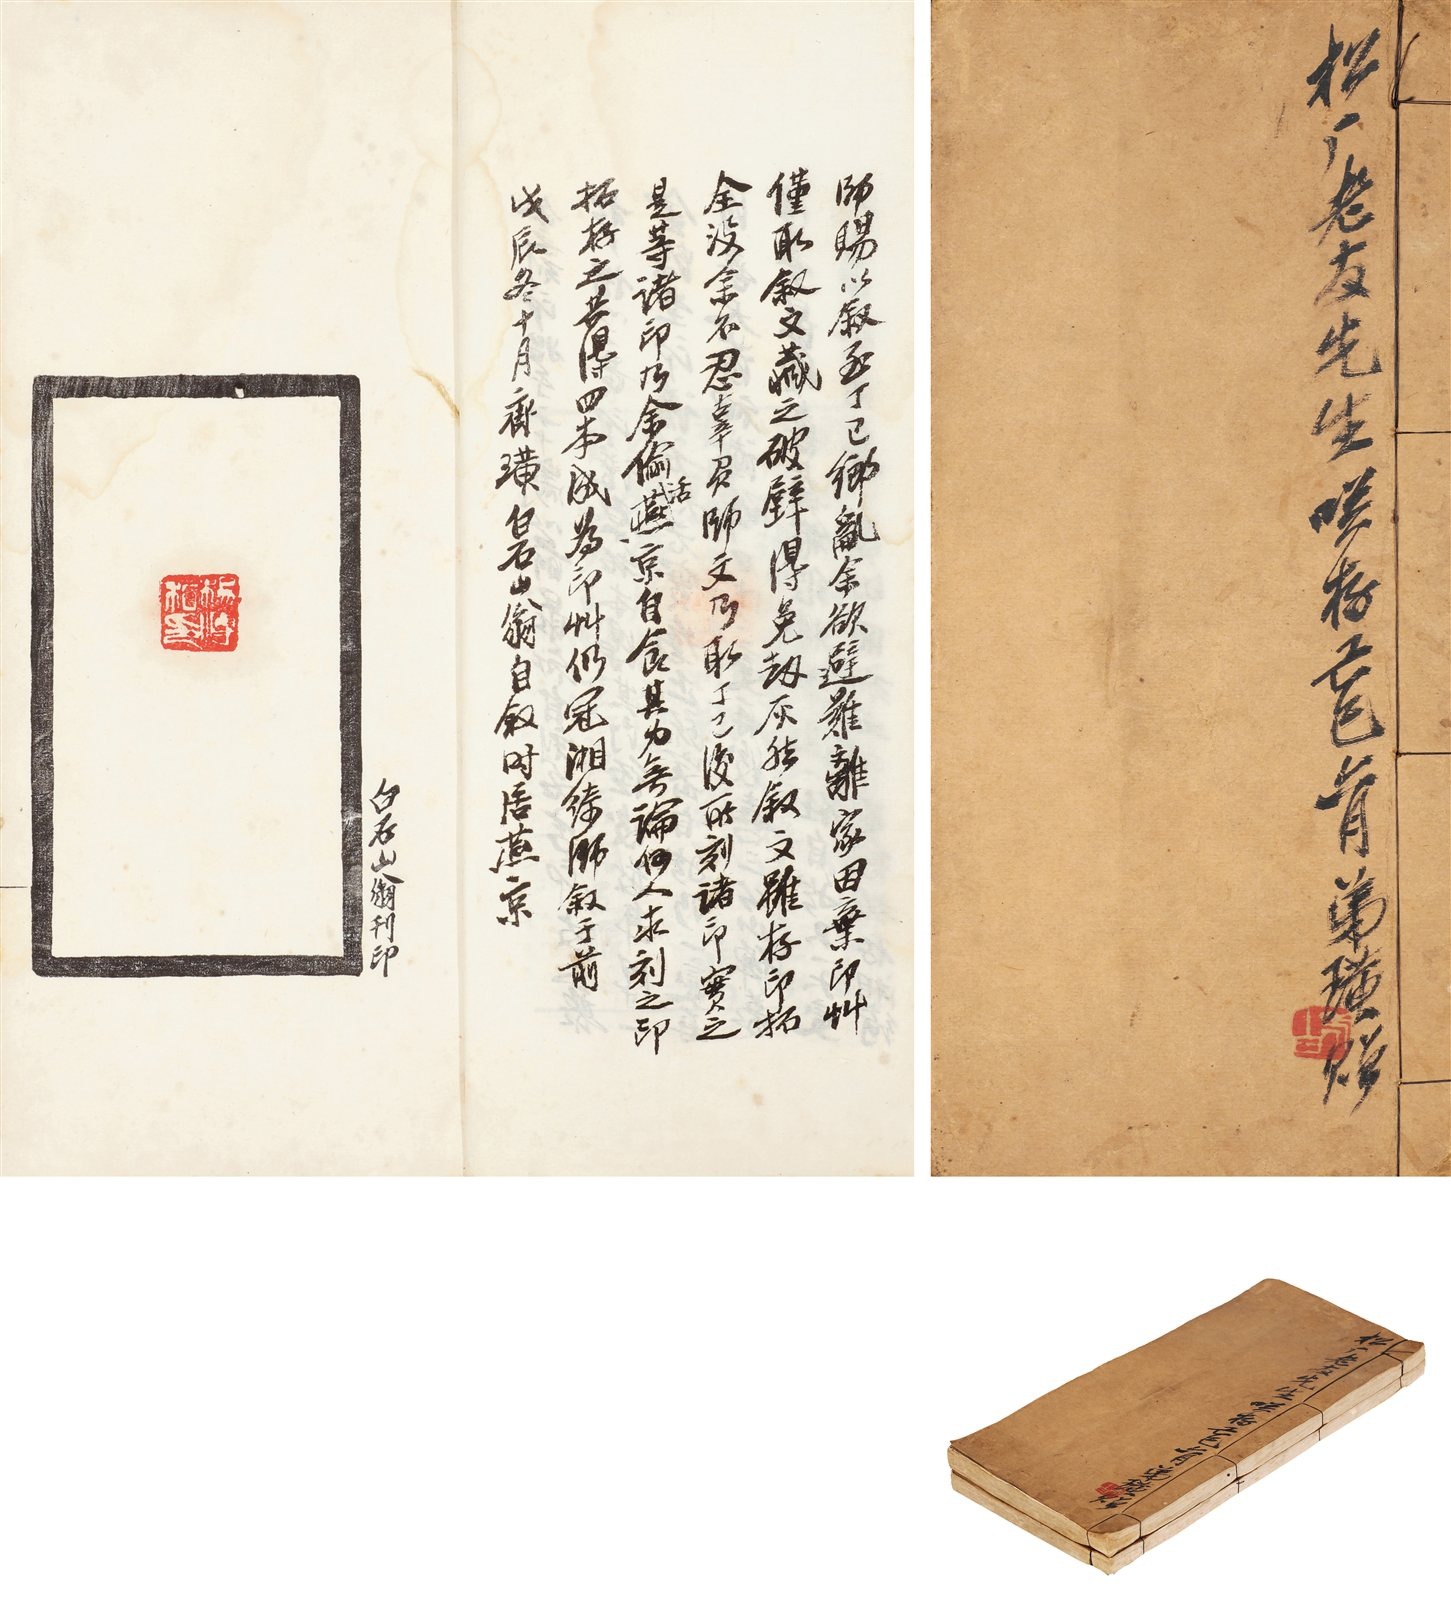 師賜以叙至丁巳鄉亂余欲避難離家因棄印艸
僅取叙文藏之破壁得免劫灰然叙文雖存印拓
全没余不忍辜負師文乃取丁巳後所刻諸印實之
是等諸印乃余偷活燕京自食其力無論何人求刻之印
拓存之共得四本成為印艸仍冠湘綺師叙于前
戊辰冬十月齊璜白石山翁自叙时居燕京
白石山翁刊印
松厂老友先生咲存 弟璜贈